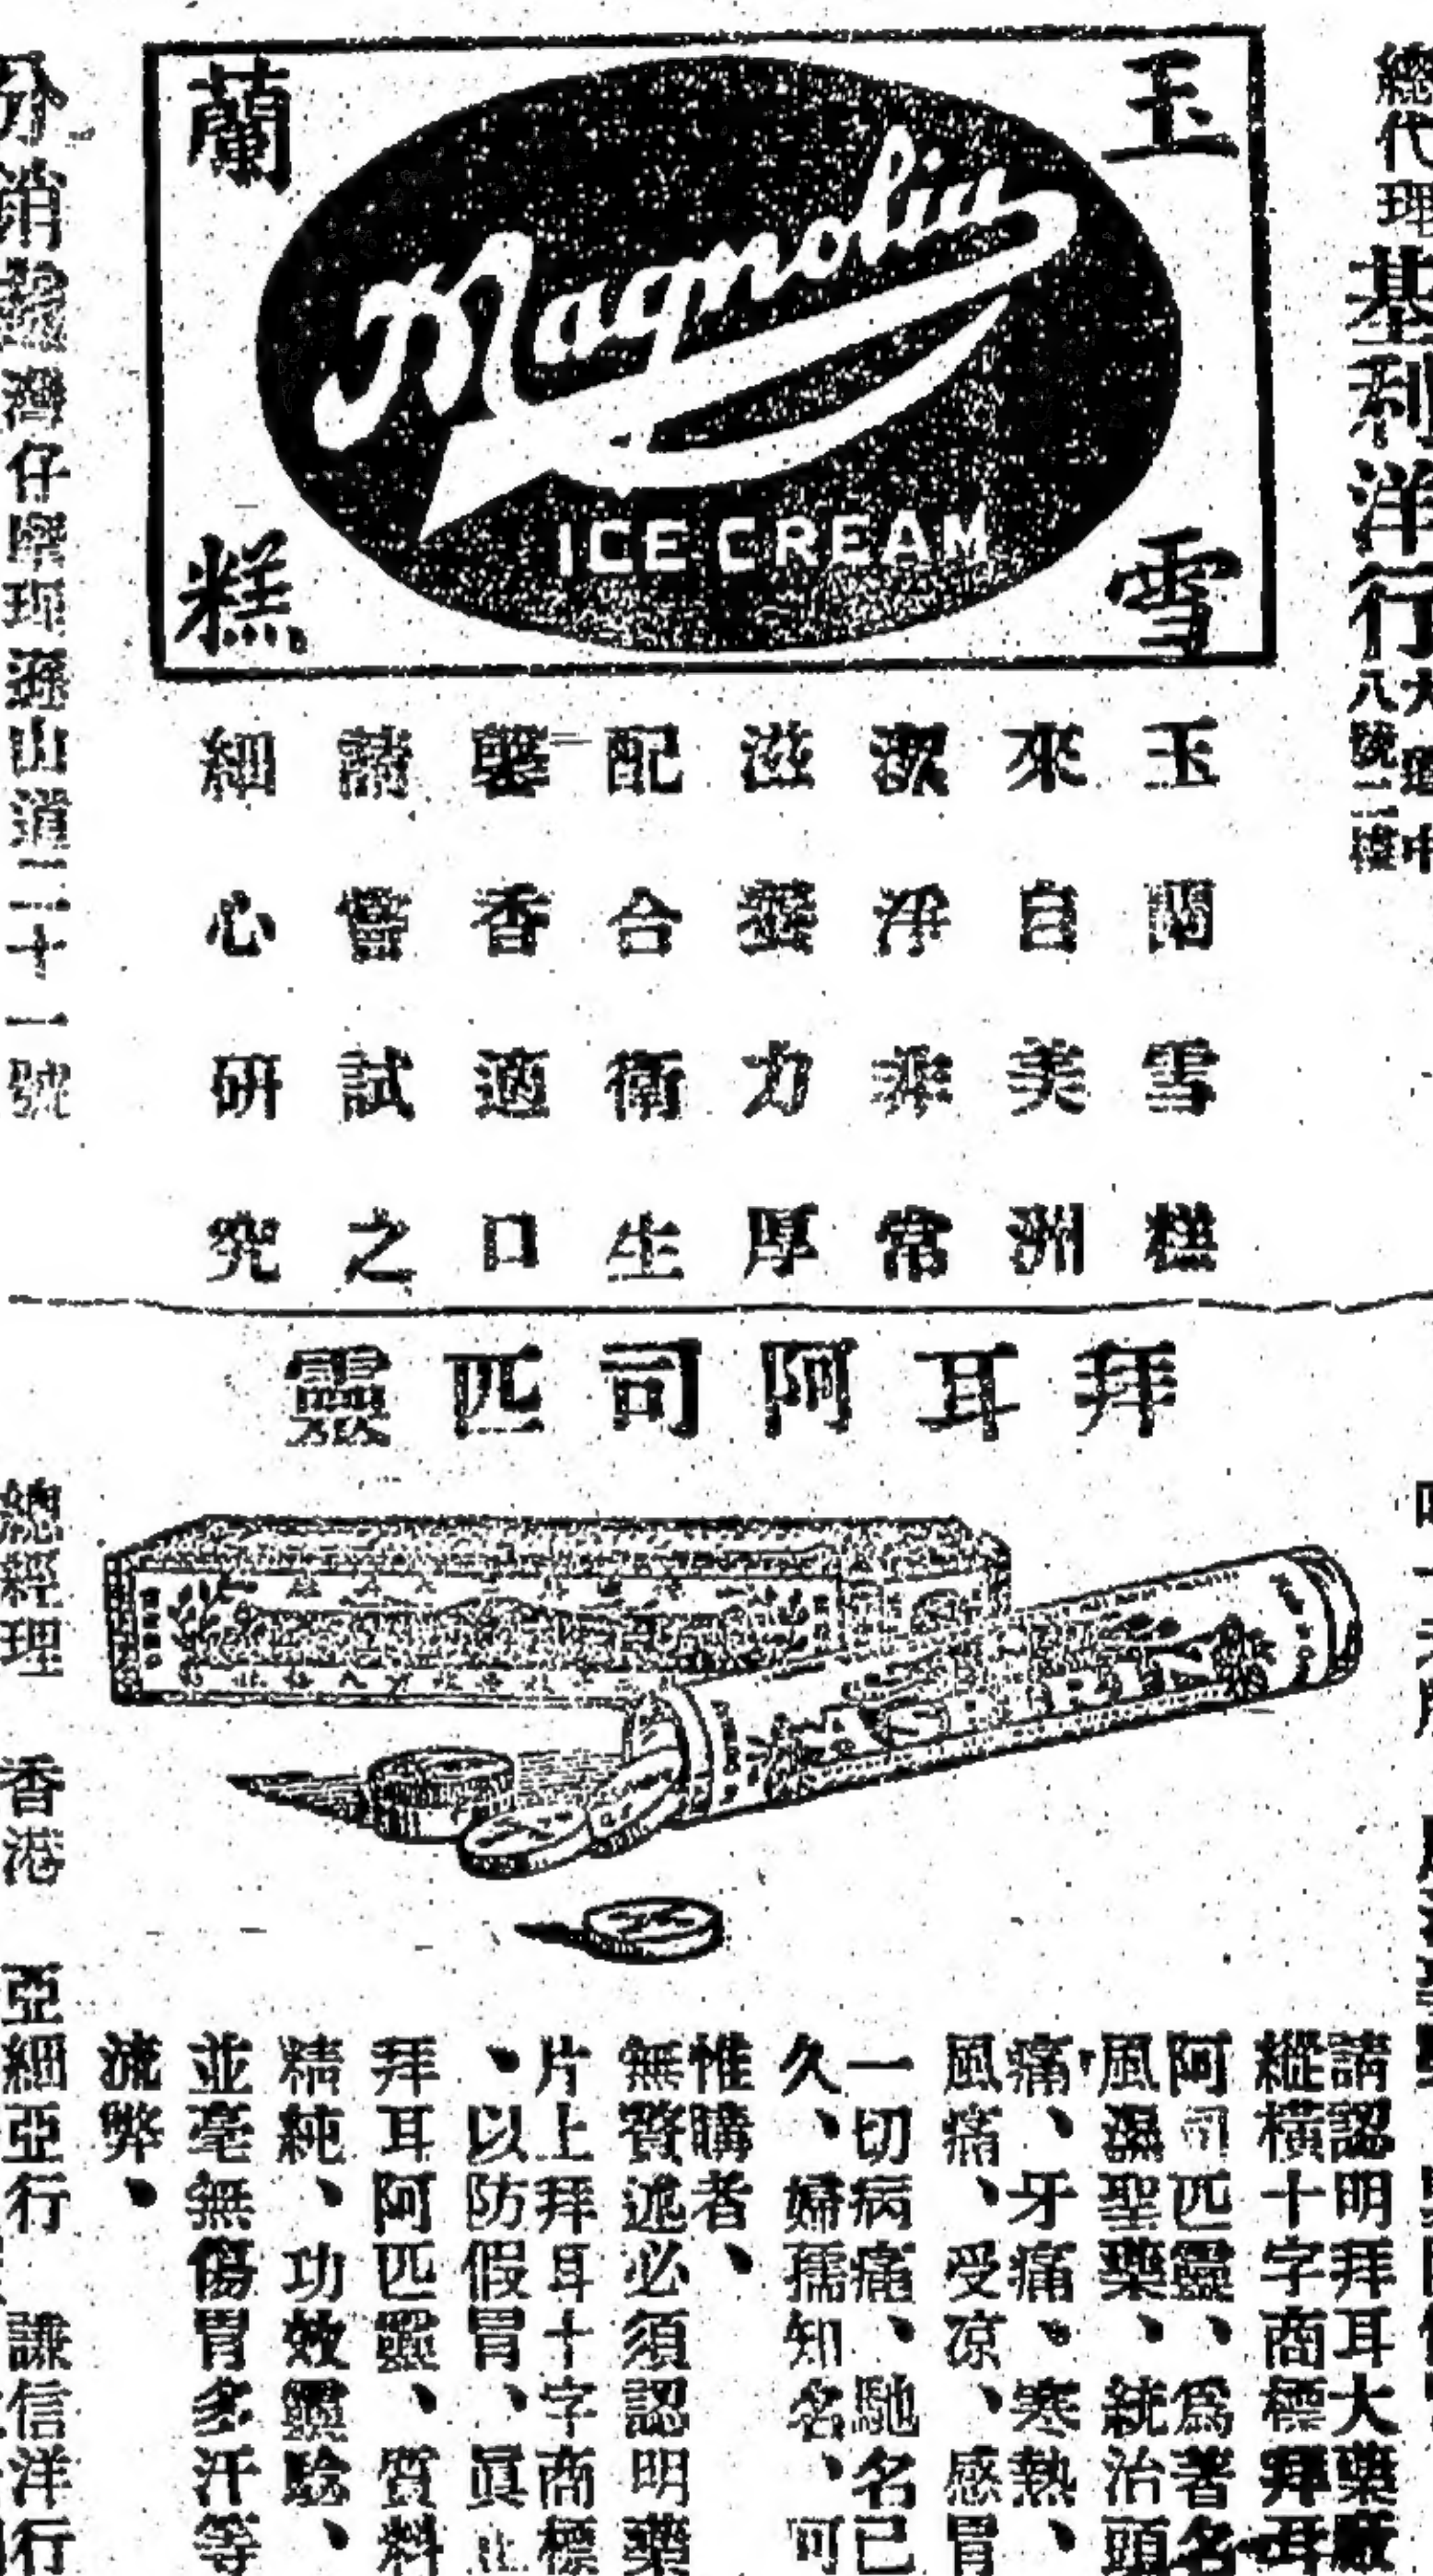 總代理基利洋行
大道中
八號二樓
玉
蘭
雪
糕
Magnolia
ICE CREAM
玉蘭雪糕
來自美洲
潔淨非常
滋養力厚
配合衛生
馨香適口
請嘗試之
細心研究
分銷處灣仔
山道二十一號
拜耳阿司匹靈
ASPIRIN
請認明拜耳大藥廠
縱橫十字商標拜耳
阿司匹靈、爲著名
風濕聖藥、統治頭
痛、牙痛、寒熱、
風痛、受凉、感冒
一切病痛、馳名已
久、婦孺知名、可
惟購者、
無贅述必須認明藥
片上拜耳十字商標
、以防假冒、眞正
拜耳阿匹靈、質料
精純、功效靈驗、
並毫無傷胃多汗等
流弊、
總經理 香港 亞細亞行 謙信洋行